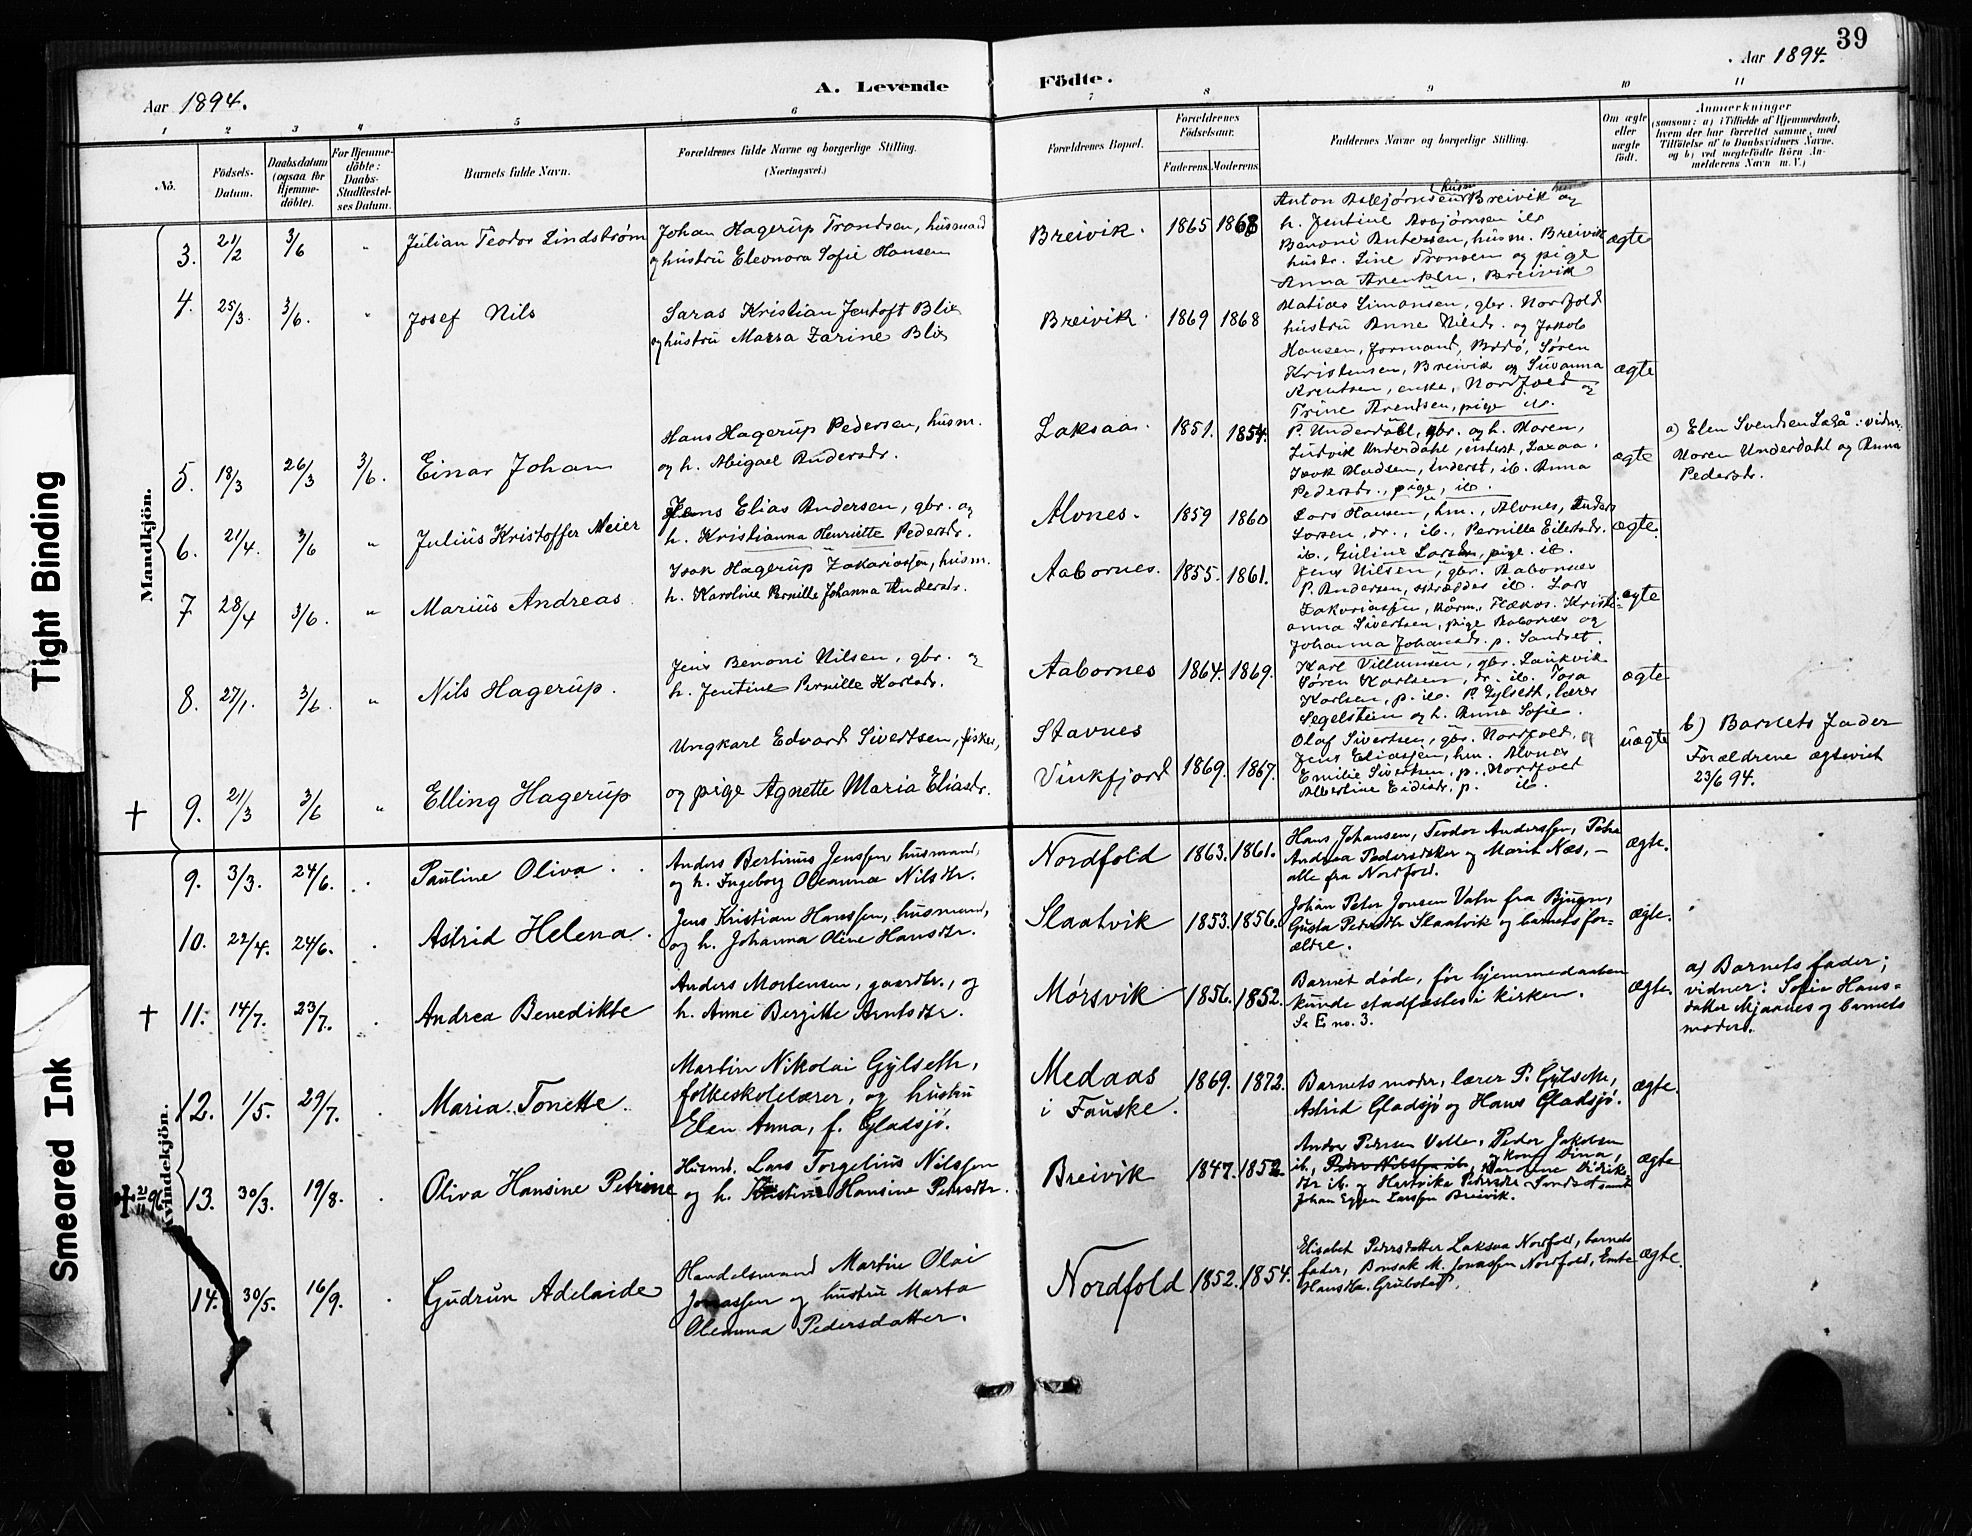 39
Aar 1894.
A. Levende
Födte.
Aar 1894.
1 2 3 4 5 6 7 8 9 10 11
No.
Födsels-
Datum.
Daabsdatum
(ogsaa for
Hjemme-
döbte).
For Hjemme-
döbte:
Daabs-
Stadfæstel-
ses Datum.
Barnets fulde Navn.
Forældrenes fulde Navne og borgerlige Stilling.
(Næringsvei.)
Forældrenes Bopæl.
Forældrenes
Födselsaar.
Faderens. Moderens.
Faddernes Navne og borgerlige Stilling.
Om ægte
eller
uægte
födt.
Anmærkninger
(saasom: a) i Tilfælde af Hjemmedaab,
hvem der har forrettet samme, med
Tilföielse af to Daabsvidners Navne,
og b) ved uægtefödte Börn An-
melderens Navn m. V.)
Mandkjön.
3. 21/2 3/6 " Julian Teodor Lindstrøm
Johan Hagerup Trondsen, husmand
og hustru Eleonora Sofie Hansen
Breivik. 1865 1868
Anton Asbjørnsen Breivik og
h. Jentine Asbjørnsen ib.
Benoni Andersen, husm. Breivik
husdr. Line Tronsen og pige
Anna Arentsen, Breivik
ægte
4. 25/3. 3/6. " Josef Nils
Saras Kristian Jentoft Blix
og hustru Massa Zarine Blix
Breivik. 1869 1868
Matias Simonsen, gbr. Nordfold
hustru Anne Nilsdr. og Jakob
Hansen, formand, Bodø, Søren
Kristensen, Breivik og Susanna
Arentsen, enke, Nordfold og
Trine Arentsen, pige ib.
ægte
5. 18/3 26/3 3/6. Einar Johan
Hans Hagerup Pedersen, husm.
og h. Abigael Andersdr.
Laksaa. 1851. 1854.
P. Underdahl, gbr. og h. Maren,
Ludvik Underdahl, inderst, Laxaa.
Isak Madsen, inderst, ib. Anna
Pedersdr., pige, ib.
ægte
a) Elen Svendsen Laxå: vidner:
Maren Underdahl og Anna
Pedersdr.
6. 21/4. 3/6 " Julius Kristoffer Meier
Jens Elias Andersen, gbr. og
h. Kristianna Henriette Pedersdr.
Alvnes. 1859 1860
Lars Hansen, hm., Alvnes, Anders
Larsen, dr., ib., Pernille Eilertsdr.
ib., Guline Larsdr, pige. ib.
ægte.
7. 28/4 3/6. " Marius Andreas.
Isak Hagerup Zakariassen, husm.
h. Karoline Pernille Johanna Andersdr.
Aabornes. 1855. 1861.
Jens Nilsen, gbr. Aabornes
P. Andersen, skrædder ib. Lars
Zakariassen, Kristi-
anna Sivertsen, pige Aabornes og
Johanna Johansdr. p. Sandset.
ægte
8. 27/1. 3/6. " Nils Hagerup.
Jens Benoni Nilsen, gbr. og
h. Jentine Pernille Karlsdr.
Aabornes 1864. 1869.
Karl Villumsen, gbr. Laukvik
Søren Karlsen, dr. ib. Tora
Karlsen, p. ib. P. Gylseth, lærer
Segelstein og h. Anna Sofie.
ægte
† 9. 21/3 3/6 " Elling Hagerup
Ungkarl Edvard Sivertsen, fisker,
og pige Agnette Maria Eliasdr.
Stavnes
Vinkfjord 1869. 1867.
Olaf Sivertsen, gbr. Nordfold, og
Jens Eliassen, hm. Alvnes
Emilie Sivertsen, p., Nordfold
Albertine Eidisdr. p. ib.
uægte
b) Barnets Fader
Forældrene ægteviet
23/6 94.
Kvindekjön.
9. 3/3. 24/6. Pauline Oliva.
Anders Bertinus Jenssen, husmand,
og h. Ingeborg Oleanna Nilsdtr.
Nordfold 1863. 1861.
Hans Johansen, Teodor Anderssen, Petra
Andrea Pedersdatter og Marit Næs, –
alle fra Nordfold.
ægte.
10. 22/4. 24/6. Astrid Helena.
Jens Kristian Hanssen, husmand,
og h. Johanna Oline Hansdtr.
Slaatvik 1853. 1856.
Johan Peter Jonsen Vatn fra Bjugn,
Gusta Pedersdtr Slaatvik og barnets for-
ældre.
ægte.
† 11. 14/7. 23/7. Andrea Benedikte
Anders Mortensen, gaardbr., og
h. Anne Bergitte Arntsdtr.
Mørsvik 1856. 1852.
Barnet døde, før hjemmedaaben
kunde stadfæstes i kirken.
Se E no. 3.
ægte.
a) Barnets fader;
vidner: Sofie Hans-
datter Mjaanes og barnets
moder.
12. 1/5. 29/7. Maria Tonette.
Martin Nikolai Gylseth,
folkeskolelærer, og hustru
Elen Anna, f. Gladsjø.
Medaas
i Fauske. 1869. 1872.
Barnets moder, lærer P. Gylseth,
Astrid Gladsjø og Hans Gladsjø.
ægte.
13. 30/3. 19/8. Oliva Hansine Petrine
Husmd. Lars Torgelius Nilssen
og h. Hansine Pedersdtr.
Breivik 1847. 1852.
Andor Pedersen Valle, Peder Jakobsen
ib., Peder Nilssen ib., og kone Dina,
Didrik-
dtr ib. og Hertvika Pedersdtr Sandset samt
Johan Eggen Larssen Breivik.
ægte
14. 30/5. 16/9. Gudrun Adelaide
Handelsmand Martin Olai
Jonassen og hustru Marta
Oleanna Pedersdatter.
Nordfold 1852. 1854.
Elisabet Pedersdatter Laksaa Nordfold, barnets
fader, Bonsak M. Jonassen Nordfold, Enke
Hansdtr. Grubstad.
ægte.
Tight Binding
Smeared Ink